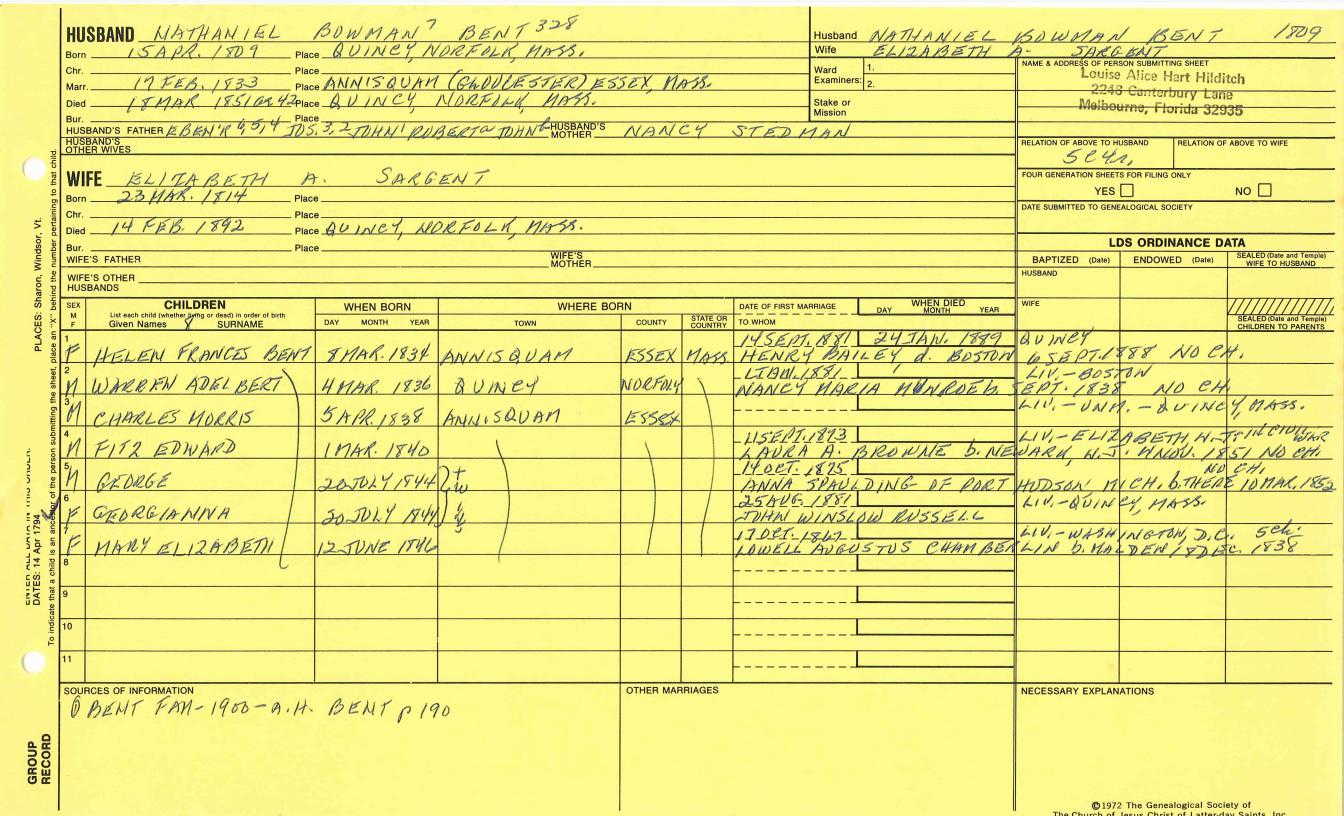 HUSBAND NATHANIEL BOWMAN7 BENT 328
Born 15 APR. 1809 Place QUINCY, NORFOLK, MASS.
Chr. Place
Marr. 17 FEB. 1833 Place ANNISQUAM (GLOUCESTER) ESSEX, MASS.
Died 18 MAR 1851 OR 42 Place QUINCY, NORFOLK, MASS.
Bur. Place
HUSBAND'S FATHER EBEN'R 6,5,4 JOS. 3,2 JOHN1 ROBERT JOHN HUSBAND'S MOTHER NANCY STEDMAN
HUSBAND'S OTHER WIVES
Husband NATHANIEL BOWMAN BENT 1809
Wife ELIZABETH A. SARGENT
Ward Examiners: 1.
2.
Stake or Mission
NAME & ADDRESS OF PERSON SUBMITTING SHEET
Louise Alice Hart Hilditch
2246 Canterbury Lane
Melbourne, Florida 32935
RELATION OF ABOVE TO HUSBAND
RELATION OF ABOVE TO WIFE
FOUR GENERATION SHEETS FOR FILING ONLY
YES NO
DATE SUBMITTED TO GENEALOGICAL SOCIETY
WIFE ELIZABETH A. SARGENT
Born 23 MAR. 1814 Place
Chr. Place
Died 14 FEB. 1892 Place QUINCY, NORFOLK, MASS.
Bur. Place
WIFE'S FATHER WIFE'S MOTHER
WIFE'S OTHER HUSBANDS
LDS ORDINANCE DATA
BAPTIZED (Date) ENDOWED (Date) SEALED (Date and Temple) WIFE TO HUSBAND
HUSBAND
WIFE
SEALED (Date and Temple) CHILDREN TO PARENTS
SEX M F
CHILDREN
List each child (whether living or dead) in order of birth
Given Names 8 SURNAME
WHEN BORN
DAY MONTH YEAR
WHERE BORN
TOWN COUNTY STATE OR COUNTRY
DATE OF FIRST MARRIAGE
TO WHOM
WHEN DIED
DAY MONTH YEAR
1 F HELEN FRANCES BENT 8 MAR. 1834 ANNISQUAM ESSEX MASS 14 SEPT. 1881 24 JAN. 1889 QUINCY
HENRY BAILEY, d. BOSTON 6 SEPT. 1888 NO CH.
2 M WARREN ADELBERT 4 MAR. 1836 QUINCY NORFOLK 1 JAN. 1881 LIV.-BOSTON
NANCY MARIA MUNROE b. SEPT. 1838 NO CH.
3 M CHARLES MORRIS 5 APR. 1838 ANNISQUAM ESSEX LIV.-UNM.-QUINCY, MASS.
4 M FITZ EDWARD 1 MAR. 1840 11 SEPT. 1873 LIV.-ELIZABETH, N.J. IN CIVIL WAR
LAURA A. BROWNE b. NEWARK, N.J. NOV. 1851 NO CH.
5 M GEORGE 20 JULY 1844 14 OCT. 1875 NO CH.
ANNA SPAULDING OF PORT HUDSON MICH. b. THERE 10 MAR. 1852
6 F GEORGIANNA 20 JULY 1844 25 AUG. 1881 LIV.-QUINCY, MASS.
JOHN WINSLOW RUSSELL
7 F MARY ELIZABETH 12 JUNE 1846 17 OCT. LIV.-WASHINGTON, D.C. 5 ch.
LOWELL AUGUSTUS CHAMBERLIN b. MALDEN 18 DEC. 1838
8
9
10
11
SOURCES OF INFORMATION
① BENT FAM-1900-A.H. BENT p 190
OTHER MARRIAGES
NECESSARY EXPLANATIONS
©1972 The Genealogical Society of
The Church of Jesus Christ of Latter-day Saints, Inc.
PLACES: Sharon, Windsor, Vt.
ENTER ALL DATA IN THIS ORDER:
DATES: 14 Apr 1794
To indicate that a child is an ancestor of the person submitting the sheet, place an "X" behind the number pertaining to that child.
GROUP RECORD